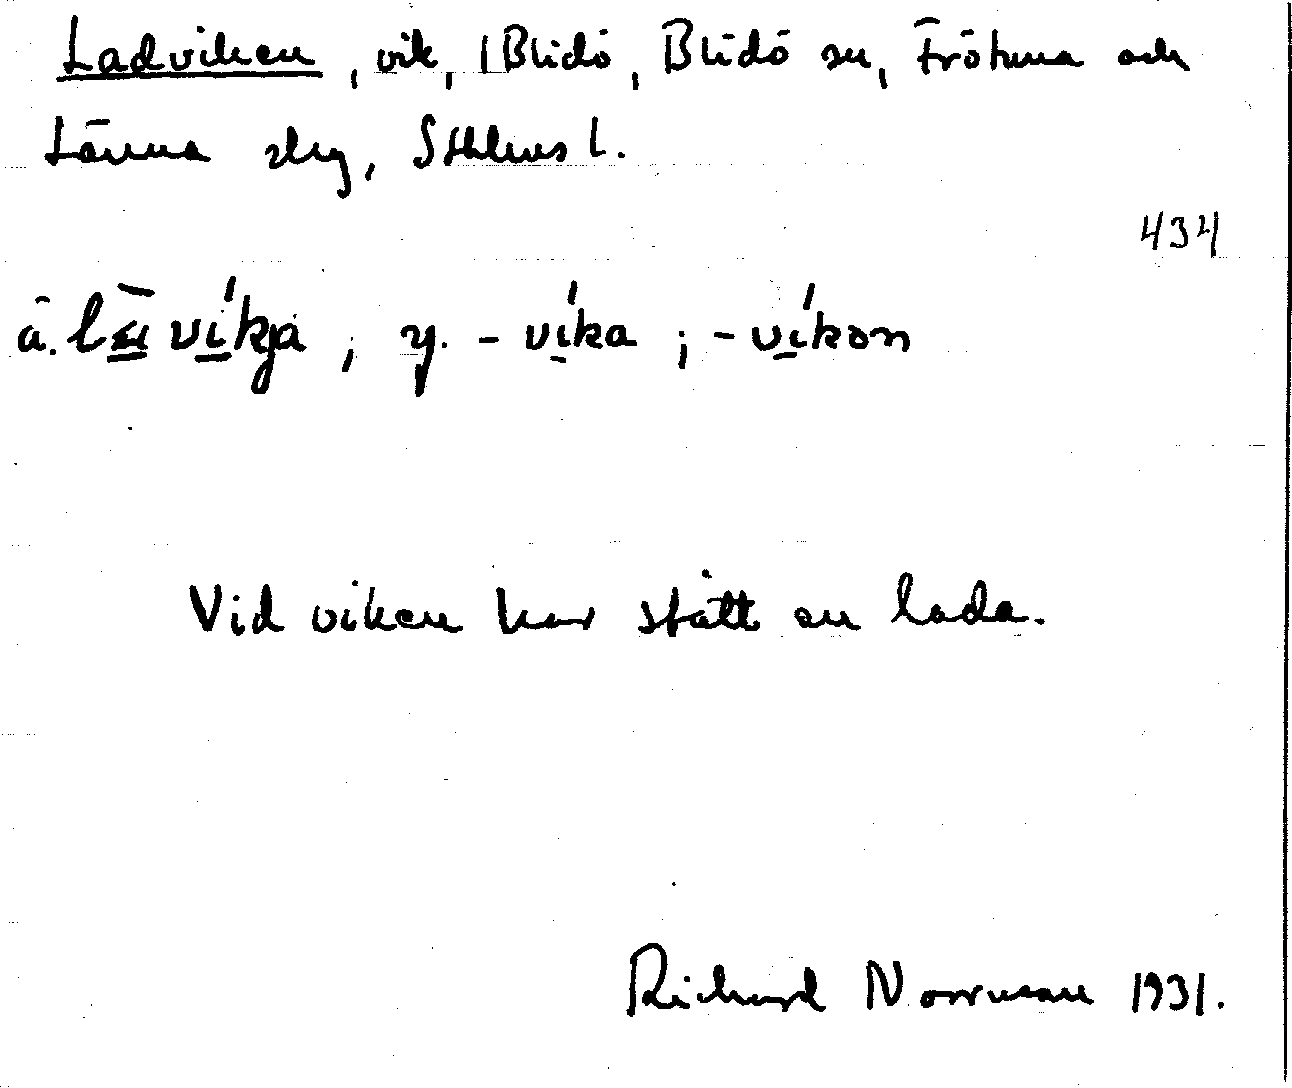 Ladviken, vik, Blidö, Blidö sn, Frötuna och
Länna slg, Sthlms l.
434
ä. lā víkja, y. - víka ; - víkon
Vid viken har stått en lada.
Richard Norrman 1931.